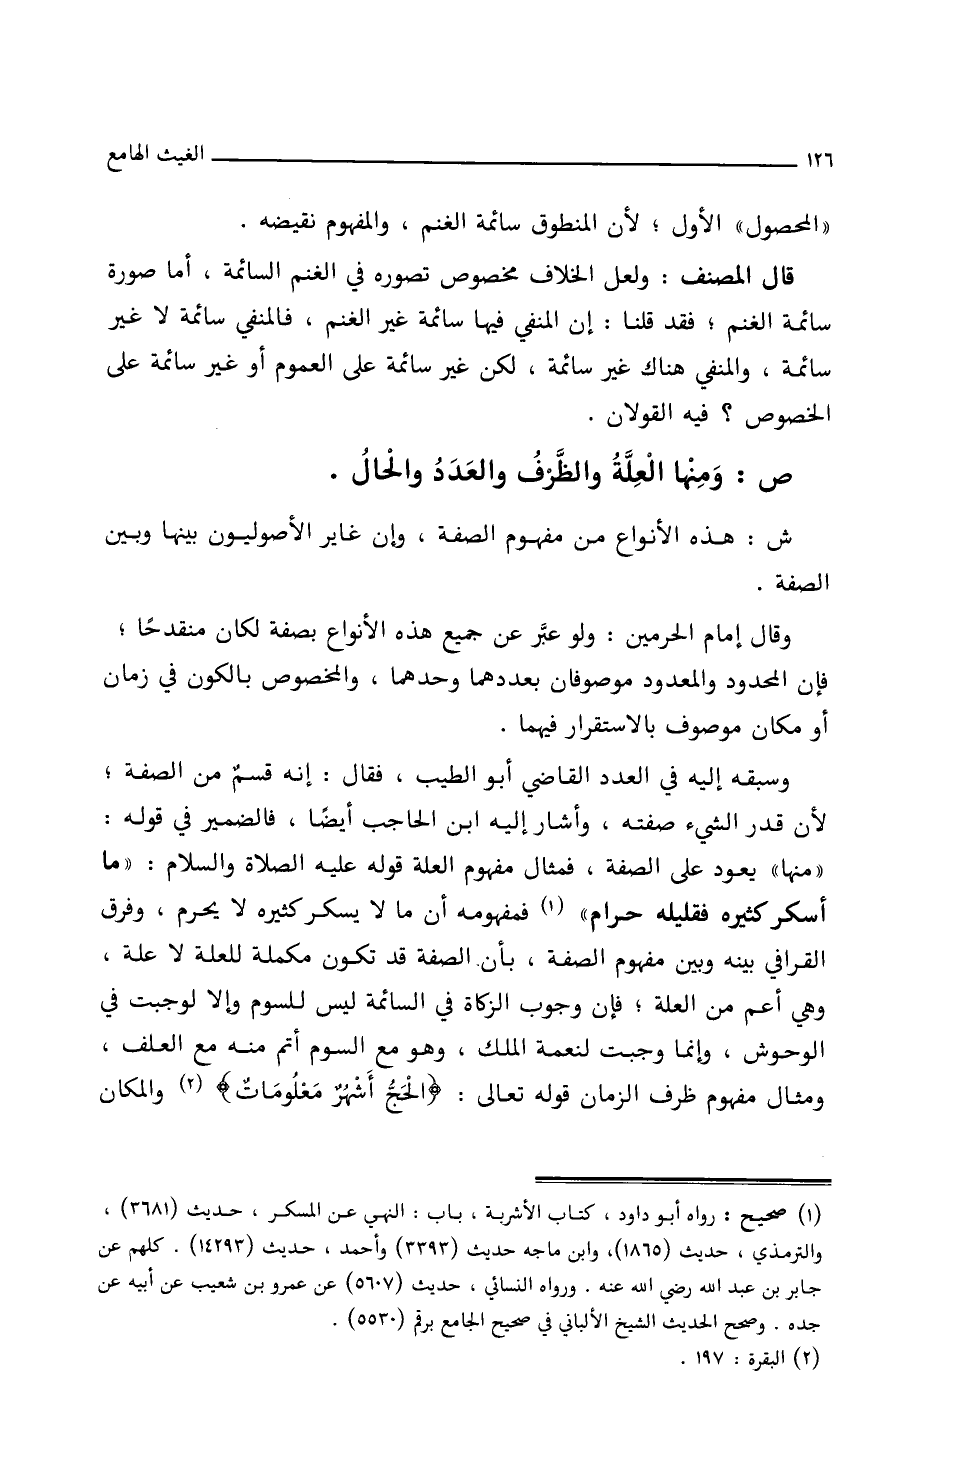 ١٢٦ الغيث الهامع
«المحصول» الأول ؛ لأن المنطوق سائمة الغنم ، والمفهوم نقيضه .
قال المصنف : ولعل الخلاف مخصوص تصوره في الغنم السائمة ، أما صورة
سائمة الغنم ؛ فقد قلنا : إن المنفي فيها سائمة غير الغنم ، فالمنفي سائمة لا غير
سائمة ، والمنفي هناك غير سائمة ، لكن غير سائمة على العموم أو غير سائمة على
الخصوص ؟ فيه القولان .
ص : وَمِنْها الْعِلَّةُ والظَّرْفُ والعَدَدُ والْحالُ .
ش : هذه الأنواع من مفهوم الصفة ، وإن غاير الأصوليون بينها وبين
الصفة .
وقال إمام الحرمين : ولو عبَّر عن جميع هذه الأنواع بصفة لكان منقدحًا ؛
فإن المحدود والمعدود موصوفان بعددهما وحدهما ، والمخصوص بالكون في زمان
أو مكان موصوف بالاستقرار فيهما .
وسبقه إليه في العدد القاضي أبو الطيب ، فقال : إنه قسمٌ من الصفة ؛
لأن قدر الشيء صفته ، وأشار إليه ابن الحاجب أيضًا ، فالضمير في قوله :
«منها» يعود على الصفة ، فمثال مفهوم العلة قوله عليه الصلاة والسلام : «ما
أسكر كثيره فقليله حرام» (١) فمفهومه أن ما لا يسكر كثيره لا يحرم ، وفرق
القرافي بينه وبين مفهوم الصفة ، بأن الصفة قد تكون مكملة للعلة لا علة ،
وهي أعم من العلة ؛ فإن وجوب الزكاة في السائمة ليس للسوم وإلا لوجبت في
الوحوش ، وإنما وجبت لنعمة الملك ، وهو مع السوم أتم منه مع العلف ،
ومثال مفهوم ظرف الزمان قوله تعالى : ﴿الْحَجُّ أَشْهُرٌ مَعْلُومَاتٌ﴾ (٢) والمكان
(١) صحيح : رواه أبو داود ، كتاب الأشربة ، باب : النهي عن المسكر ، حديث (٣٦٨١) ،
والترمذي ، حديث (١٨٦٥)، وابن ماجه حديث (٣٣٩٣) وأحمد ، حديث (١٤٢٩٣) . كلهم عن
جابر بن عبد الله رضي الله عنه . ورواه النسائي ، حديث (٥٦٠٧) عن عمرو بن شعيب عن أبيه عن
جده . وصحح الحديث الشيخ الألباني في صحيح الجامع برقم (٥٥٣٠) .
(٢) البقرة : ١٩٧ .